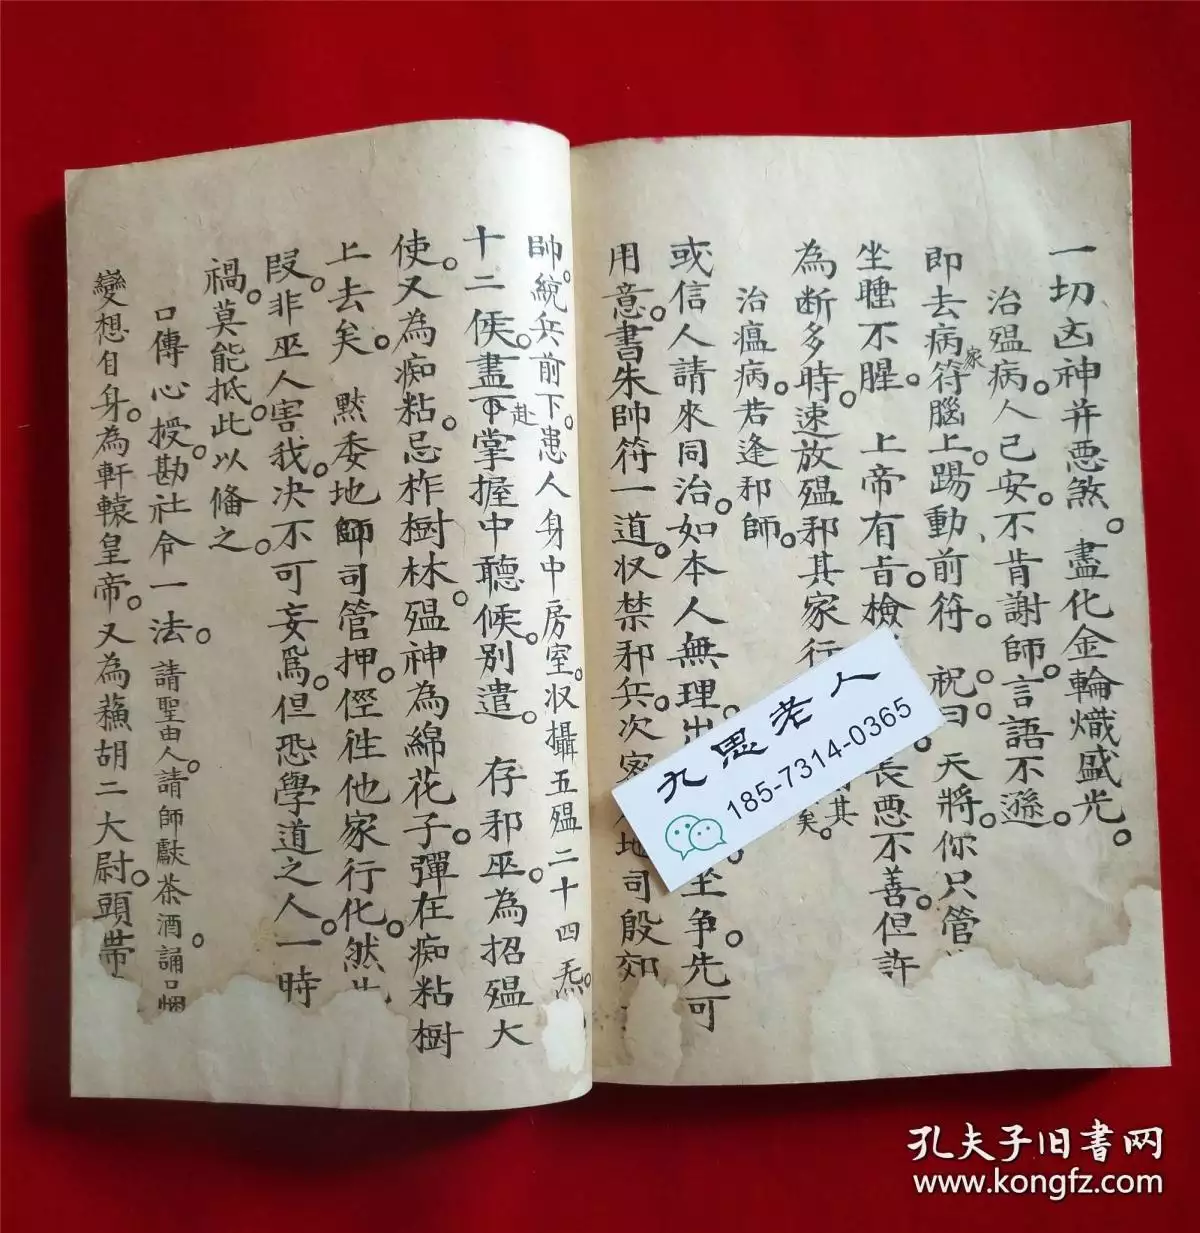 一切凶神并悪煞。盡化金輪熾盛光。
治殟病。人已安。不肯謝師。言語不遜。
即去病家符腦上。踢動前符。祝曰。天將。你只管
坐睡不腥。上帝有旨。檢 長悪不善。但許
為断多時。速放殟邪其家行 其 矣。
治瘟病。若逢邪師。
或信人請來同治。如本人無理出 坐争先可
用意。書朱帥符一道。収禁邪兵。次 地司殷郊
帥。統兵前下。患人身中房室。収攝五殟二十四炁。
十二候。盡下赴掌握中聽候。别遣。存邪巫。為招殟大
使。又為痴粘。忌柞樹林。殟神為綿花子。彈在痴粘樹
上去矣。黙委地師司管押。徑往他家行化。然
段。非巫人害我。决不可妄為。但恐學道之人。一時
禍。莫能抵。此以俻之。
口傳心授。勘社令一法。請聖由人。請師獻茶酒。誦口
變想自身。為軒轅皇帝。又為蘓胡二大尉。頭帶
九思老人
185-7314-0365
孔夫子旧书网
www.kongfz.com